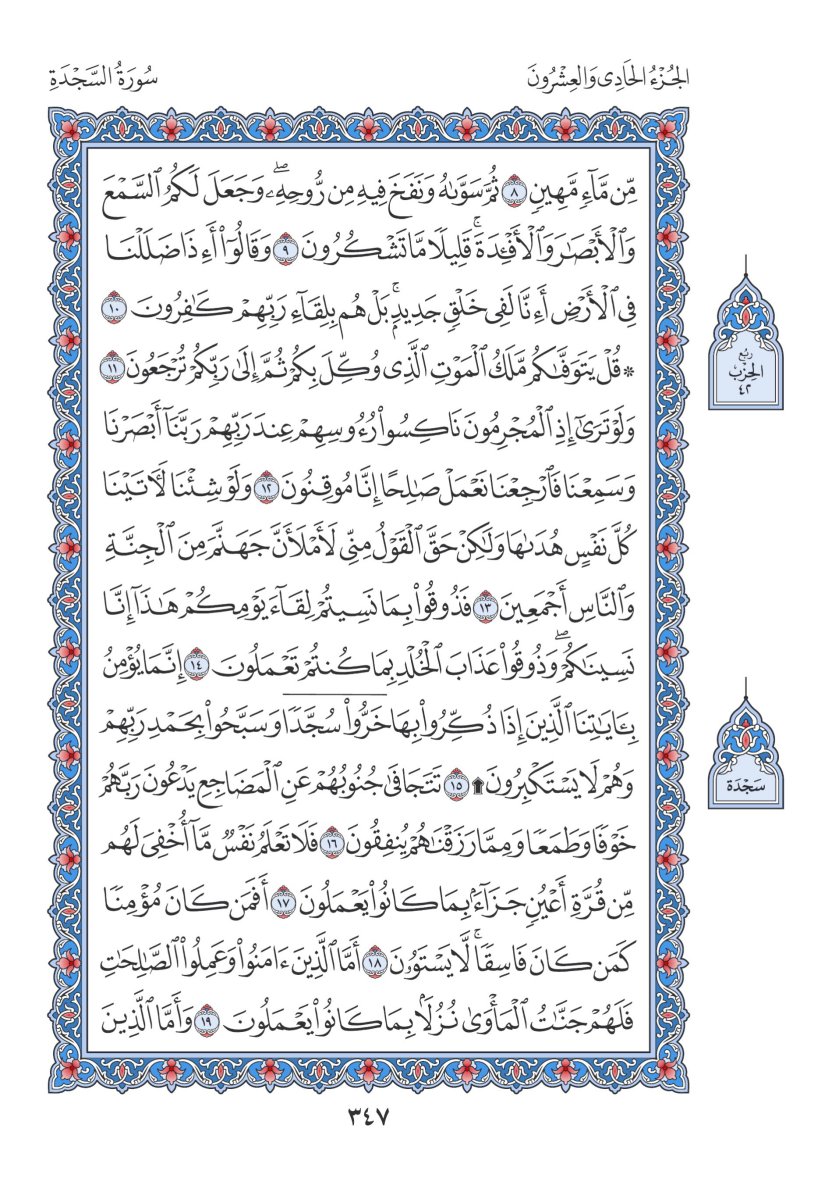 الجُزْءُ الحَادِى وَالعِشْرُونَ
سُورَةُ السَّجْدَةِ
مِّن مَّآءٍ مَّهِينٍ ٨ ثُمَّ سَوَّىٰهُ وَنَفَخَ فِيهِ مِن رُّوحِهِۦۖ وَجَعَلَ لَكُمُ ٱلسَّمْعَ
وَٱلْأَبْصَٰرَ وَٱلْأَفْـِٔدَةَۚ قَلِيلًا مَّا تَشْكُرُونَ ٩ وَقَالُوٓا۟ أَءِذَا ضَلَلْنَا
فِى ٱلْأَرْضِ أَءِنَّا لَفِى خَلْقٍ جَدِيدٍۭۚ بَلْ هُم بِلِقَآءِ رَبِّهِمْ كَٰفِرُونَ ١٠
* قُلْ يَتَوَفَّىٰكُم مَّلَكُ ٱلْمَوْتِ ٱلَّذِى وُكِّلَ بِكُمْ ثُمَّ إِلَىٰ رَبِّكُمْ تُرْجَعُونَ ١١
وَلَوْ تَرَىٰٓ إِذِ ٱلْمُجْرِمُونَ نَاكِسُوا۟ رُءُوسِهِمْ عِندَ رَبِّهِمْ رَبَّنَآ أَبْصَرْنَا
وَسَمِعْنَا فَٱرْجِعْنَا نَعْمَلْ صَٰلِحًا إِنَّا مُوقِنُونَ ١٢ وَلَوْ شِئْنَا لَـَٔاتَيْنَا
كُلَّ نَفْسٍ هُدَىٰهَا وَلَٰكِنْ حَقَّ ٱلْقَوْلُ مِنِّى لَأَمْلَأَنَّ جَهَنَّمَ مِنَ ٱلْجِنَّةِ
وَٱلنَّاسِ أَجْمَعِينَ ١٣ فَذُوقُوا۟ بِمَا نَسِيتُمْ لِقَآءَ يَوْمِكُمْ هَٰذَآ إِنَّا
نَسِينَٰكُمْۖ وَذُوقُوا۟ عَذَابَ ٱلْخُلْدِ بِمَا كُنتُمْ تَعْمَلُونَ ١٤ إِنَّمَا يُؤْمِنُ
بِـَٔايَٰتِنَا ٱلَّذِينَ إِذَا ذُكِّرُوا۟ بِهَا خَرُّوا۟ سُجَّدًا وَسَبَّحُوا۟ بِحَمْدِ رَبِّهِمْ
وَهُمْ لَا يَسْتَكْبِرُونَ۩ ١٥ تَتَجَافَىٰ جُنُوبُهُمْ عَنِ ٱلْمَضَاجِعِ يَدْعُونَ رَبَّهُمْ
خَوْفًا وَطَمَعًا وَمِمَّا رَزَقْنَٰهُمْ يُنفِقُونَ ١٦ فَلَا تَعْلَمُ نَفْسٌ مَّآ أُخْفِىَ لَهُم
مِّن قُرَّةِ أَعْيُنٍ جَزَآءًۢ بِمَا كَانُوا۟ يَعْمَلُونَ ١٧ أَفَمَن كَانَ مُؤْمِنًا
كَمَن كَانَ فَاسِقًاۚ لَّا يَسْتَوُۥنَ ١٨ أَمَّا ٱلَّذِينَ ءَامَنُوا۟ وَعَمِلُوا۟ ٱلصَّٰلِحَٰتِ
فَلَهُمْ جَنَّٰتُ ٱلْمَأْوَىٰ نُزُلًۢا بِمَا كَانُوا۟ يَعْمَلُونَ ١٩ وَأَمَّا ٱلَّذِينَ
رُبُع
الحِزْب
٤٢
سَجْدَة
٣٤٧